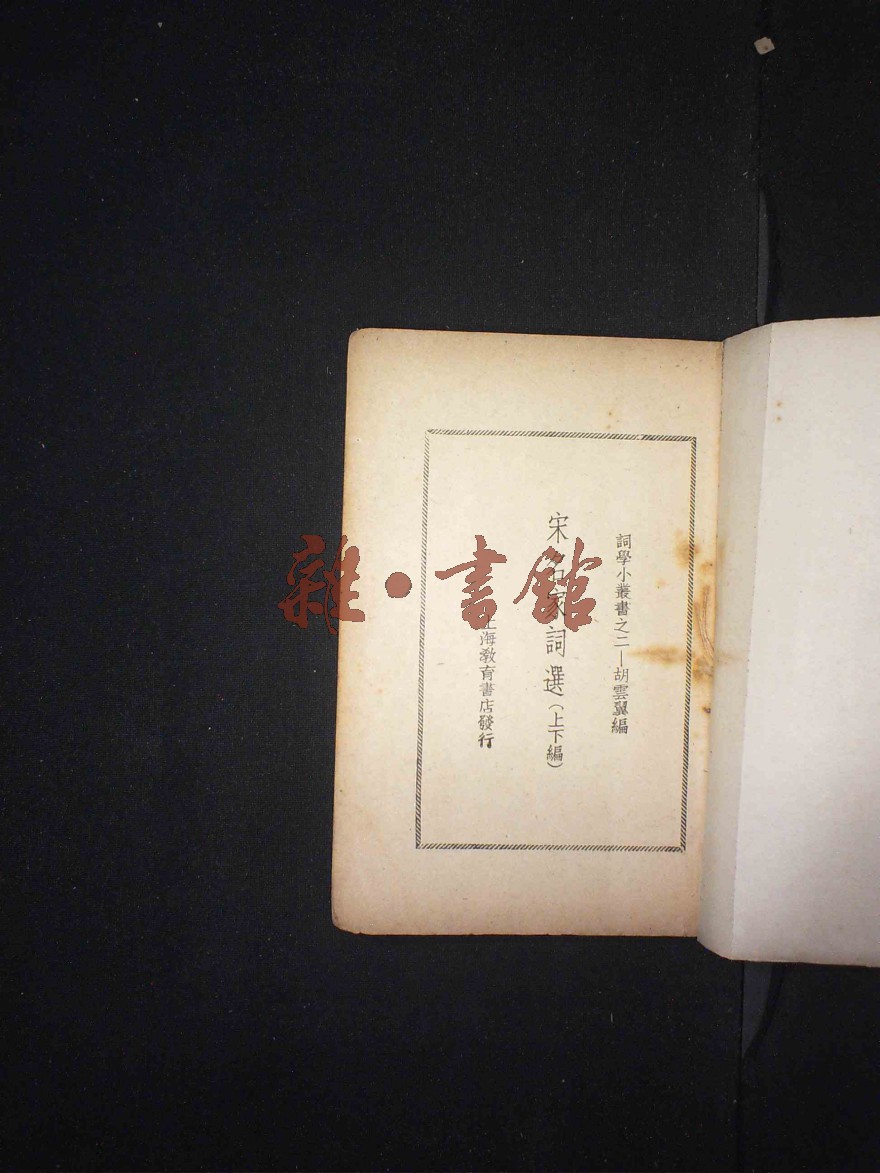 詞學小叢書之二—胡雲翼編
宋名家詞選(上下編)
上海教育書店發行
雜·書館